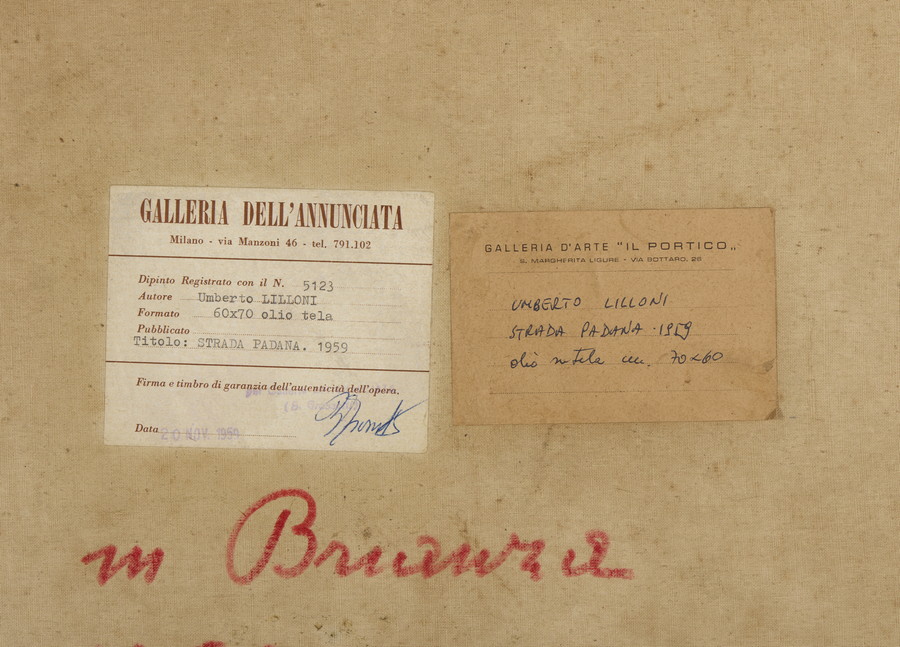 GALLERIA DELL'ANNUNCIATA
Milano - via Manzoni 46 - tel. 791.102
Dipinto Registrato con il N. 5123
Autore Umberto LILLONI
Formato 60x70 olio tela
Pubblicato
Titolo: STRADA PADANA. 1959
Firma e timbro di garanzia dell'autenticità dell'opera.
Data 20 NOV. 1959
GALLERIA D'ARTE "IL PORTICO„
S. MARGHERITA LIGURE - VIA BOTTARO, 28
UMBERTO LILLONI
STRADA PADANA · 1959
olio su tela cm. 70x60
in Brianza